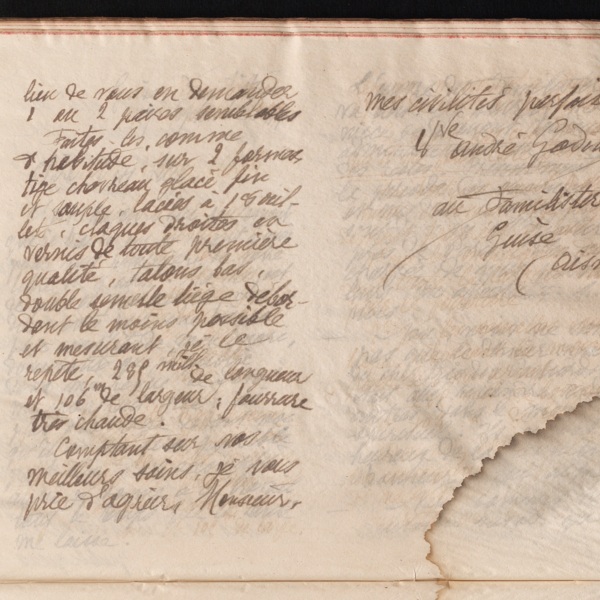 lieu de vous en demander
1 ou 2 paires semblables
Faites les, comme
d'habitude, sur 2 formes
tige chevreau glacé fin
et souple, lacées à 18 œil-
lets, claques droites en
vernis de toute première
qualité, talons bas,
double semelle liège débor-
dant le moins possible
et mesurant, je le
répète, 285 mill de longueur
et 106 m de largeur; fourrure
très chaude.
Comptant sur vos
meilleurs soins, je vous
prie d'agréer, Monsieur,
mes civilités parfai
Vve André Godin
au Familistère
Guise
(Aisn